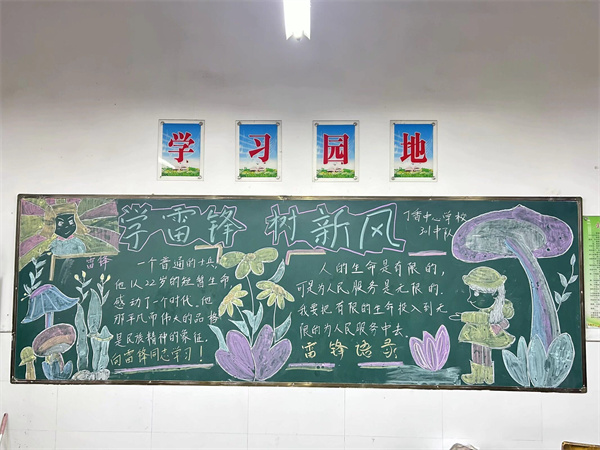 学习园地
学雷锋 树新风
中心学校
中队
雷锋
一个普通的士兵,
他以22岁的短暂生命
感动了一个时代,他
那平凡而伟大的品格
是民族精神的象征。
向雷锋同志学习!
人的生命是有限的,
可是为人民服务是无限的,
我要把有限的生命投入到无
限的为人民服务中去。
雷锋语录